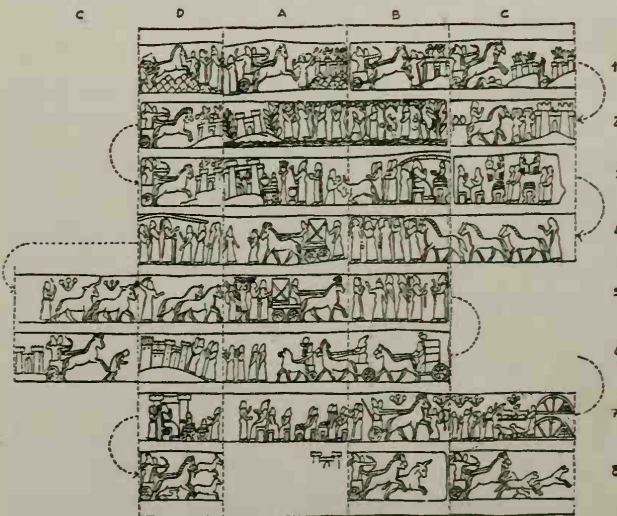 C D A B C
1
2
4
5
7
8